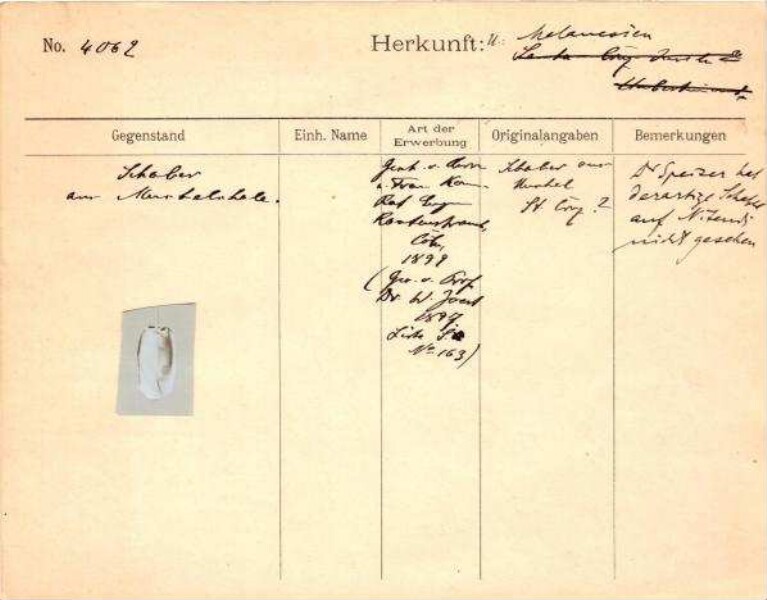 No. 4062
Herkunft: Melanesien
Santa Cruz Inseln
Gegenstand
Einh. Name
Art der Erwerbung
Originalangaben
Bemerkungen
Schaber
aus Muschelschale.
Gesch. v. Herrn
u. Frau Kom.
Rat Eugen
Rautenstrauch,
Cöln,
1899
(Ges. v. Prof.
Dr. W. Joest
1897
Liste
No 163)
Schaber aus
Muschel
St. Cruz ?
Dr Speiser hat
derartige Schaber
auf Nitendi
nicht gesehen